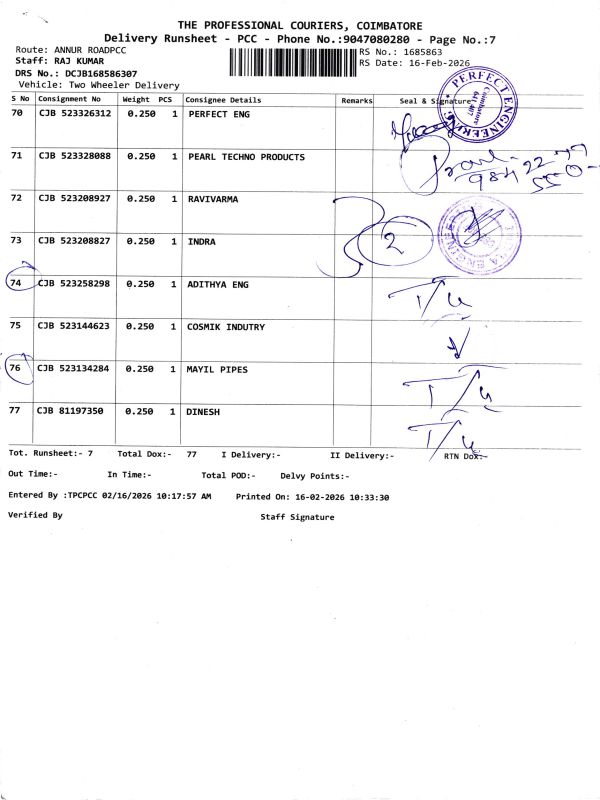 THE PROFESSIONAL COURIERS, COIMBATORE
Delivery Runsheet - PCC - Phone No.:9047080280 - Page No.:7
Route: ANNUR ROADPCC
Staff: RAJ KUMAR
DRS No.: DCJB168586307
Vehicle: Two Wheeler Delivery
RS No.: 1685863
RS Date: 16-Feb-2026
S No Consignment No Weight PCS Consignee Details Remarks Seal & Signature
70 CJB 523326312 0.250 1 PERFECT ENG
PERFECT ENGINEERING
Coimbatore
641 407
71 CJB 523328088 0.250 1 PEARL TECHNO PRODUCTS
72 CJB 523208927 0.250 1 RAVIVARMA
73 CJB 523208827 0.250 1 INDRA
2
74 CJB 523258298 0.250 1 ADITHYA ENG
75 CJB 523144623 0.250 1 COSMIK INDUTRY
76 CJB 523134284 0.250 1 MAYIL PIPES
77 CJB 81197350 0.250 1 DINESH
Tot. Runsheet:- 7 Total Dox:- 77 I Delivery:- II Delivery:- RTN Dox:-
Out Time:- In Time:- Total POD:- Delvy Points:-
Entered By :TPCPCC 02/16/2026 10:17:57 AM Printed On: 16-02-2026 10:33:30
Verified By Staff Signature